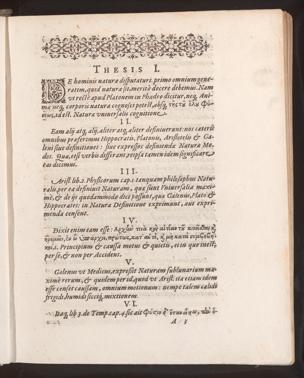 THESIS I.
DE hominis natura disputaturi, primo omnium gene-
ratim, quid natura sit, meritò docere debemus. Nam
vt rectè apud Platonem in Phædro dicitur, neq; Ani-
mæ neq; corporis natura cognosci potest, absq;
id est, Naturæ vniuersalis cognitione.
II.
Eam alij atq; alij, aliter atq; aliter definiuerunt: nos cæteris
omnibus præferimus Hippocratis, Platonis, Aristotelis & Ga-
leni siue definitiones: siue expressos definiendæ Naturæ Mo-
dos. Qua, etsi verbis differant, reipsa tamen idem significare
dicimus.
III.
Arist. lib. 2. Physicorum cap. 1. tanquam philosophus Natu-
ralis per ea definiuit Naturam, quæ sunt Vniuersalia maxi-
mè, & de ijs quodammodo dici possunt, quæ Galenus, Plato &
Hippocrates: in Natura Definitione exprimunt, aut expri-
menda censent.
IV.
Dixit enim eam esse:
Principium & causa motus & quietis, ei in quo inest,
per se, & non per Accidens.
V.
Galenus vt Medicus, expressit Naturam sublunarium ma-
ximè rerum, & quidem per id, quod vt Arist. ita etiam idem
esse censet causam, omnium motionum: nempe talem calidi
frigidi, humidi sicciq; mixtionem.
VI.
lib. 3. de Temp. cap. 4. sic ait
A 3